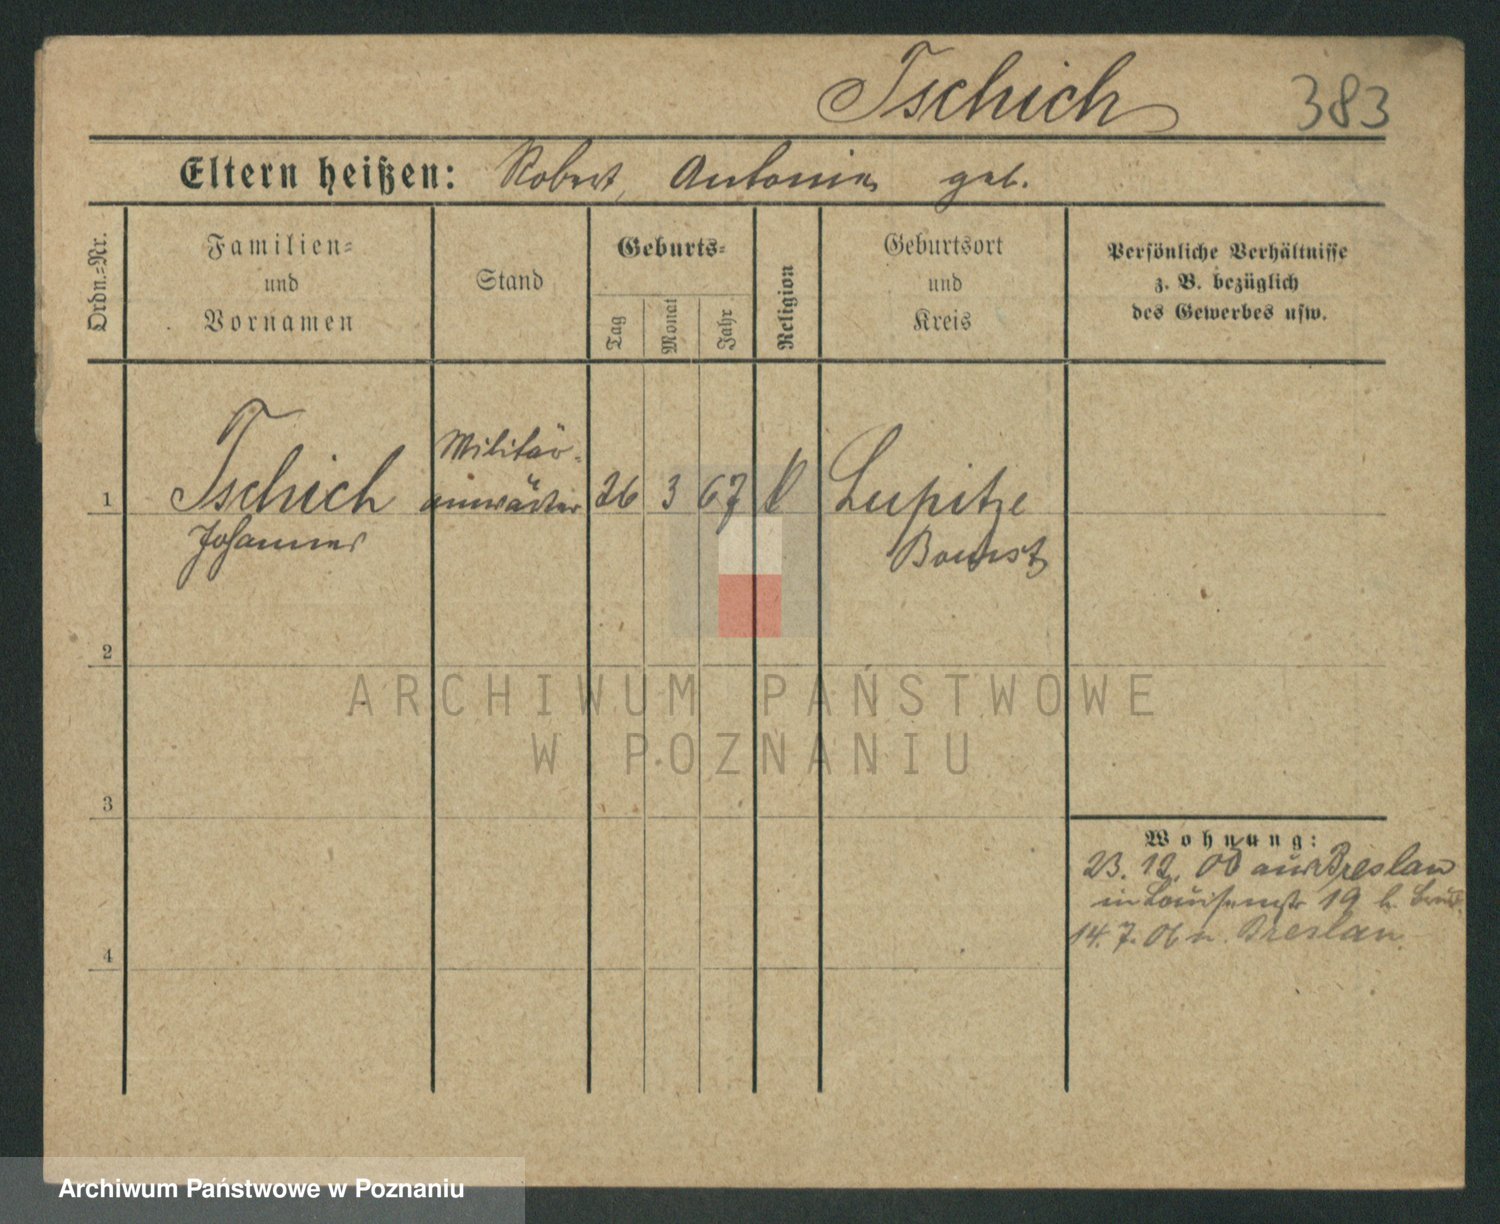 Tschich 383
Eltern heißen: Robert, Antonie geb.
Ordn.-Nr.
Familien-
und
Vornamen
Stand
Geburts-
Tag
Monat
Jahr
Religion
Geburtsort
und
Kreis
Persönliche Verhältnisse
z. B. bezüglich
des Gewerbes usw.
Militär-
1 Tschich anwärter 26 3 67 k Lupitze
Johannes Bomst
2
ARCHIWUM PAŃSTWOWE
W POZNANIU
3
Wohnung:
23. 12. 00 aus Breslau
in Louisenstr 19 b.
14. 7. 06 n. Breslau.
4
Archiwum Państwowe w Poznaniu